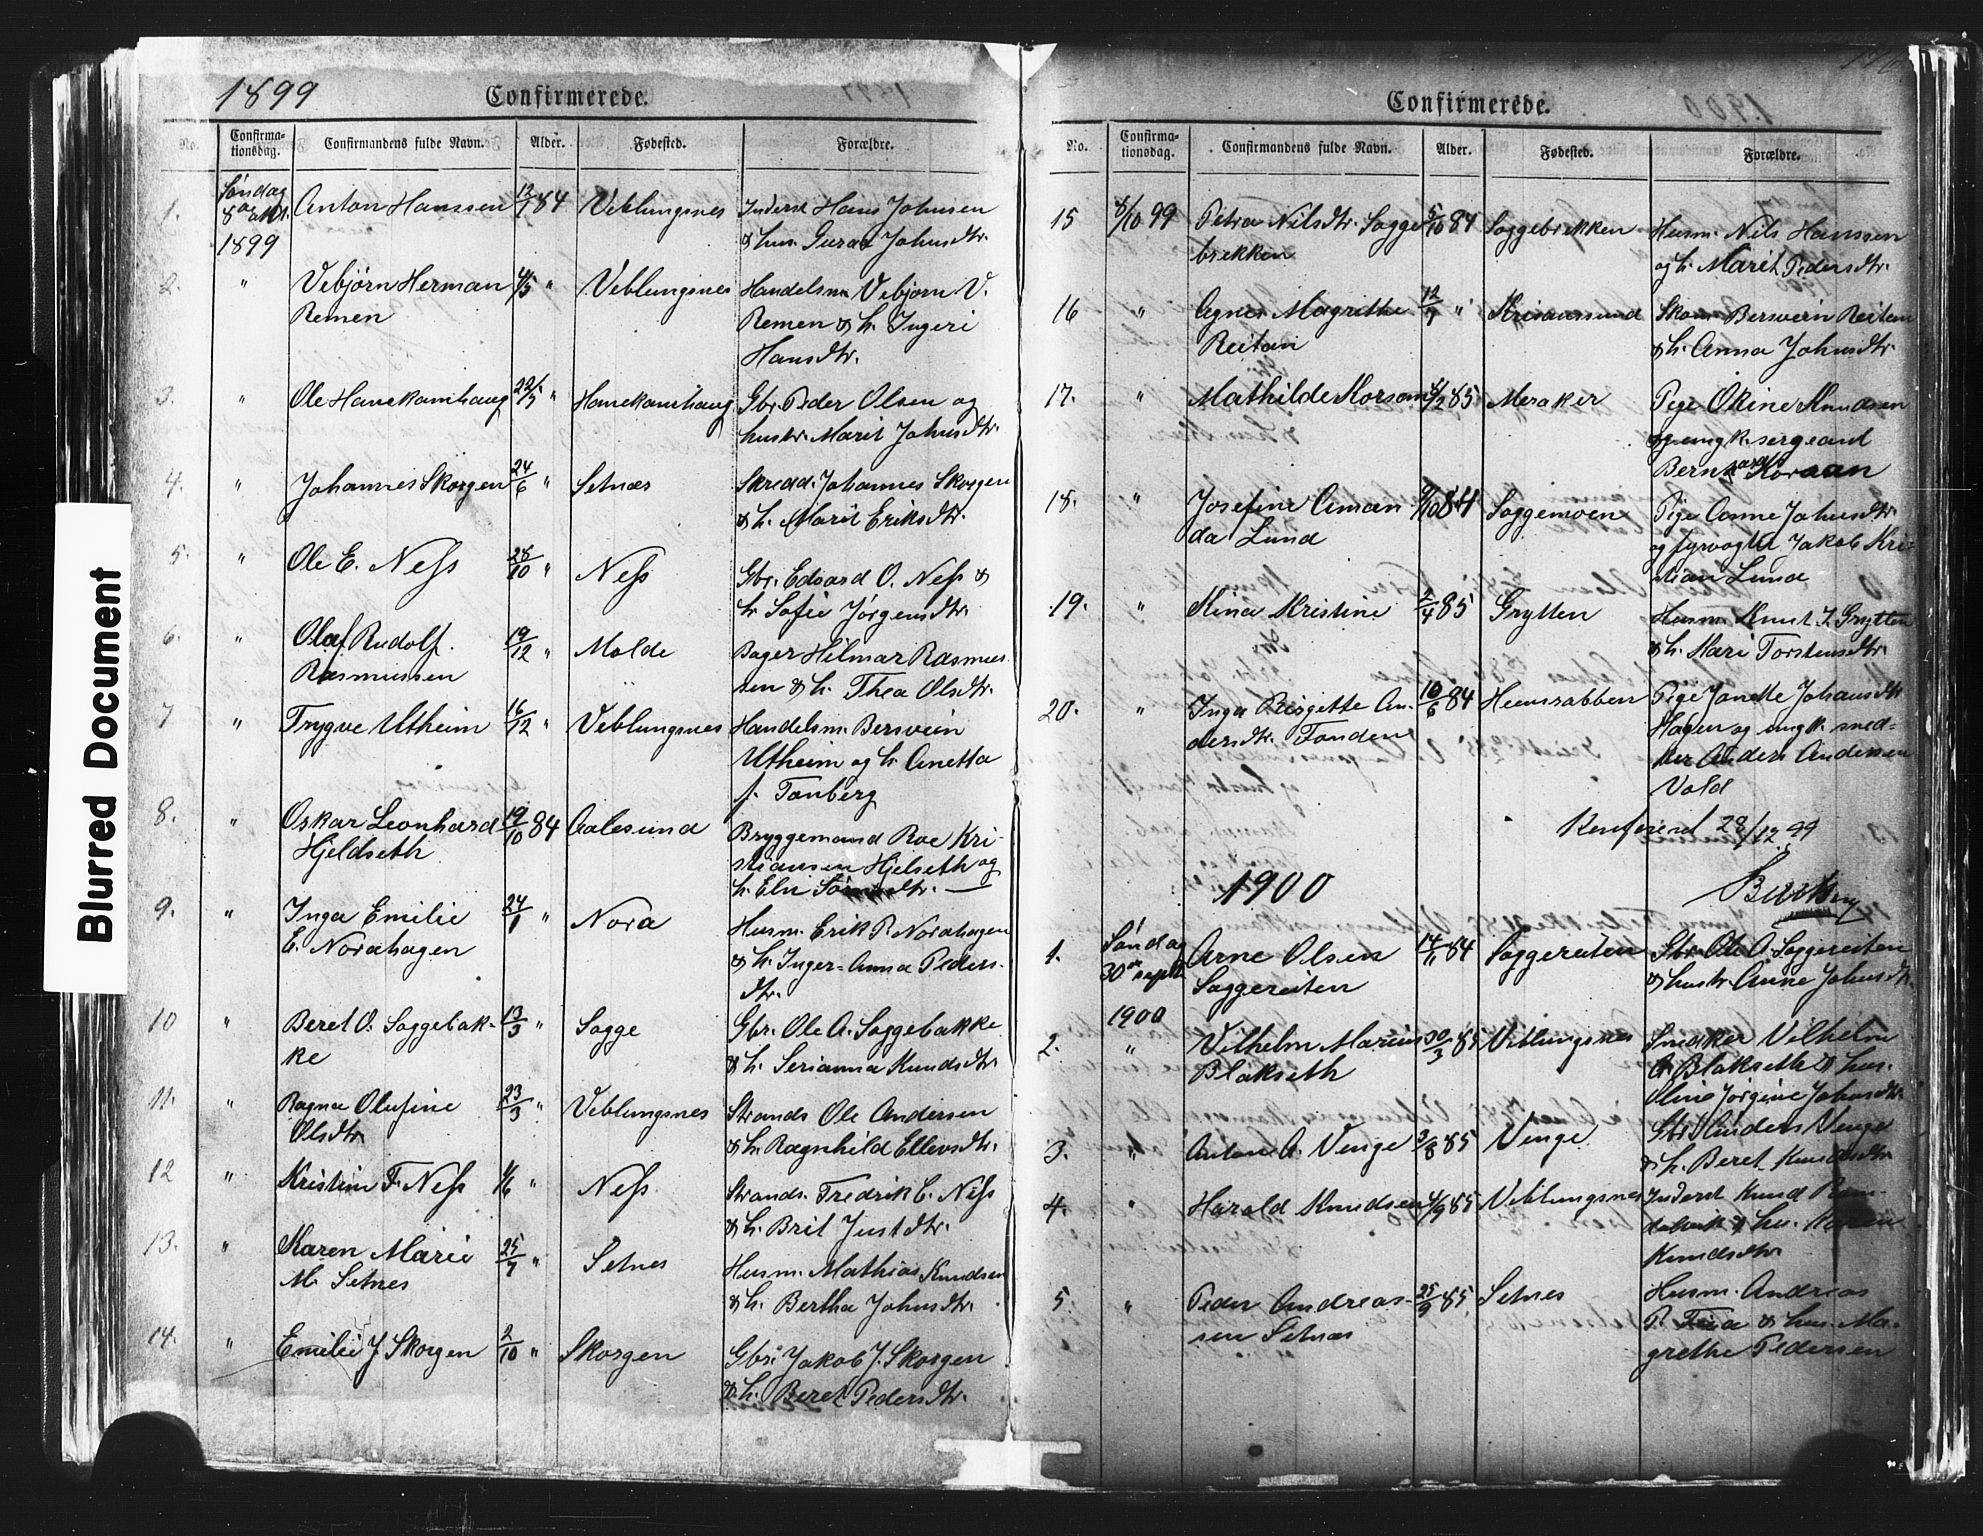 Blurred Document
1899
Confirmerede.
No. Confirma-tionsdag. Confirmandens fulde Navn. Alder. Fødested. Forældre.
1. Søndag 8de oktbr. 1899 Anton Hanssen 12/7 84 Veblungsnes Inderst Hans Johnsen
& hus. Guraa Johnsdtr.
2. " Vebjørn Herman 4/5 " Veblungsnes Handelsm. Vebjørn V.
Remen Remen & h. Ingeri
Hansdtr.
3. " Ole Hanekamhaug 22/7 " Hanekamhaug Gbr. Peder Olsen og
hustr. Marit Johnsdtr.
4. " Johannes Skorgen 24/6 " Setnæs Skredd. Johannes Skorgen
& h. Marit Eriksdtr.
5. " Ole E. Ness 28/10 " Ness Gbr. Edvard O. Ness &
h. Sofie Jørgensdtr.
6. " Olaf Rudolf 19/12 " Molde Bager Hilmar Rasmus-
Rasmussen sen & h. Thea Olsdtr.
7 " Trygve Utheim 16/12 " Veblungsnes Handelsm. Bersvein
Utheim og h. Anetta
f. Tanberg
8. " Oskar Leonhard 19/10 84 Aalesund Bryggemand Roe Kri-
Hjeldseth stiansen Hjelseth og
h. Eli
9. " Inga Emilie 24/1 " Nora Husm. Erik P. Norahagen
E. Norahagen & h. Inger-Anna Peders-
dtr.
10 " Beret O. Soggebak- 13/3 " Sogge Gbr. Ole A. Soggebakke
ke & h. Serianna Knudsdtr.
11. " Ragna Olufine 23/3 " Veblungsnes Strands. Ole Andersen
Olsdtr. & h. Ragnhild Ellevsdtr.
12 " Kristine F. Ness 1/6 " Ness Strands. Fredrik C. Ness
& h. Brit Justdtr.
13. " Karen Marie 25/7 " Setnes Husm. Mathias Knudsen
M. Setnes & h. Bertha Johnsdtr.
14. " Emilie J Skorgen 2/10 " Skorgen Gbr. Jakob J. Skorgen
& h. Beret Pedersdtr.
Confirmerede.
No. Confirma-tionsdag. Confirmandens fulde Navn. Alder. Fødested. Forældre.
15 8/10 99 Petra Nilsdtr. Sogge- 5/10 84 Soggebrekken Husm. Nils Hanssen
brekken og h. Marit Pedersdtr.
16 " Agnes Magrithe 12/7 " Kristianssund Skom. Bersvein Reitan
Reitan & h. Anna Johnsdtr.
17. " Mathilde Korsan 4/2 85 Meraker Pige Okine Knudsen
og ungk. sergeant
Bernt Korsaan
18. " Josefine Aman- 9/10 84 Soggemoen Pige Anne Johnsdtr.
da Lund og fyrvogter Jakob Kri-
stian Lund
19. " Kina Kristine 2/4 85 Grytten Husm. Knut J. Grytten
& h. Kari Torstensdtr.
20. " Inga Birgitte An- 10/6 84 Heensrabben Pige Janette Johansdtr.
dersdtr. Fonden Hagen og ungk. sned-
ker Anders Andersen
Vold
Konfereret 28/12 99
1900
1. Søndag 30te septbr. 1900 Arne Olsen 14/11 84 Soggereiten Gbr. Ole A. Soggereiten
Soggereiten & hustr. Anne Johnsdtr.
2. " Vilhelm Marius 30/3 85 Veblungsnes Snedker Vilhelm
Blakseth A. Blakseth & hus.
Jørgine Johnsdtr.
3. " Anton A. Venge 3/8 85 Venge Gbr. Anders Venge
& h. Beret Knudsdtr.
4. " Harald Knudsen 4/9 85 Veblungsnes Inderst Knud
& hu. Karen
Knudsdtr.
5. " Peder Andreas- 25/9 85 Setnes Husm. Andreas
sen Setnæs P. & hus. Ma-
grethe Pedersen